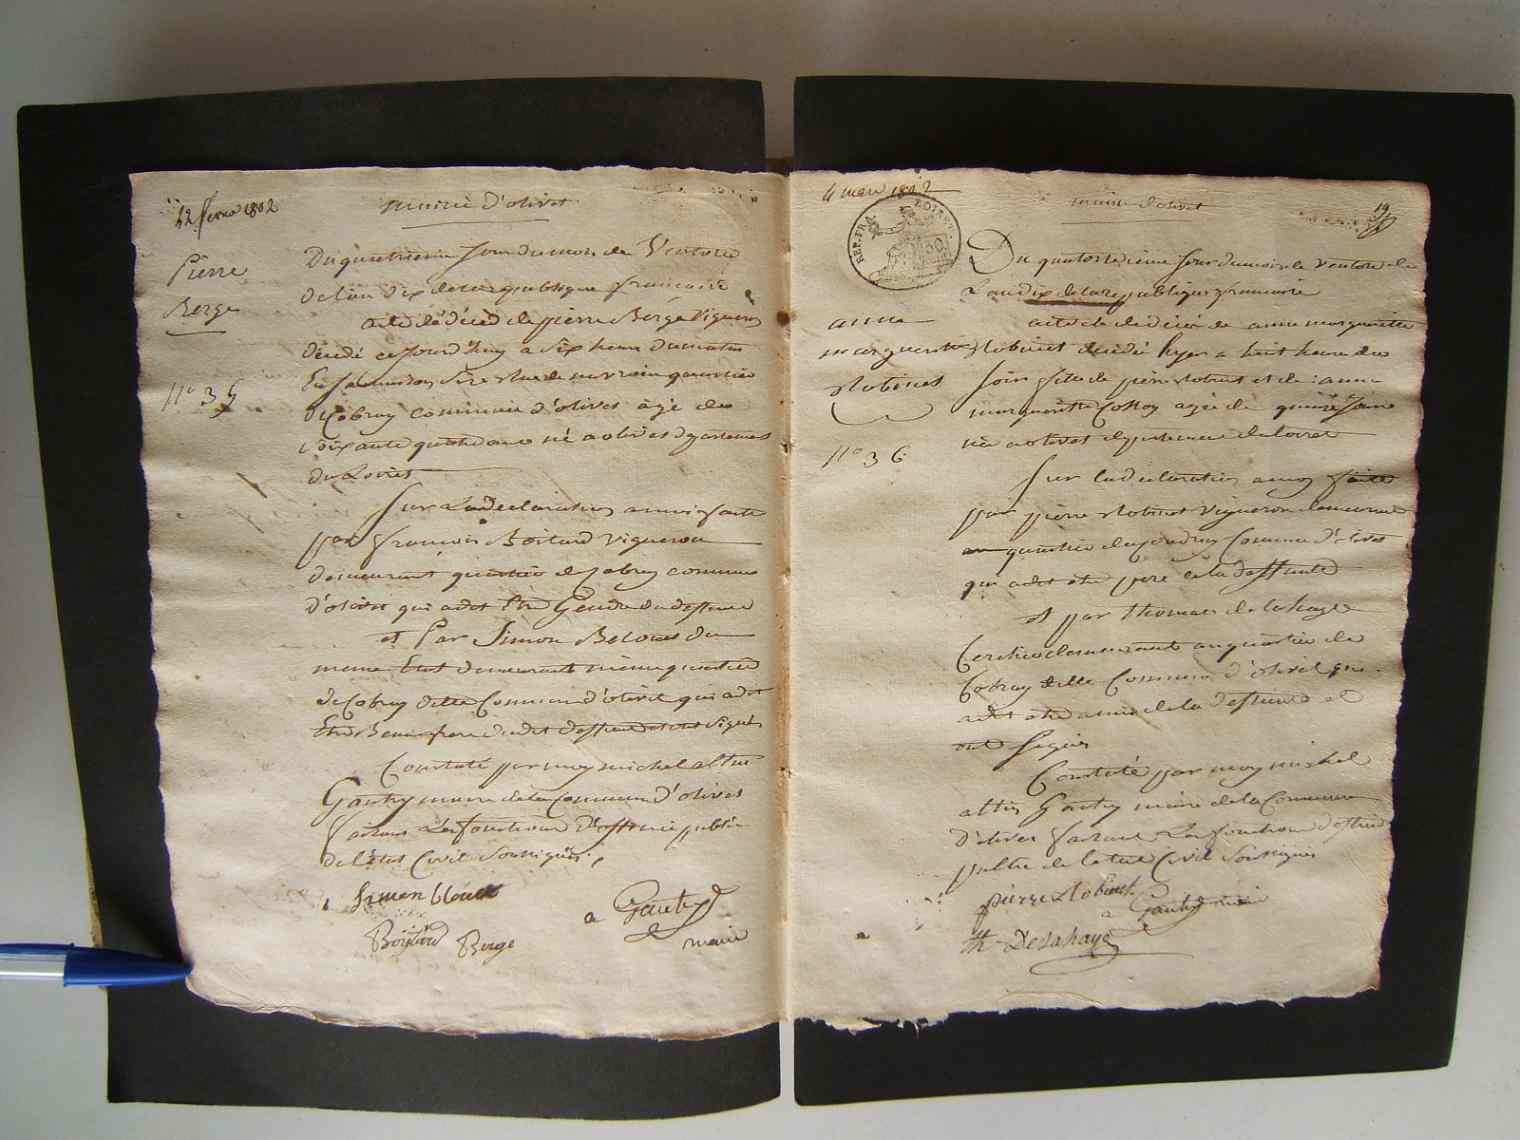 22 fevrier 1802
mairie d'olivet
Pierre
Berge
n° 35
Du quatrieme Jour du mois de Ventose
de l'an dix de la republique francaise
acte de déces de pierre Bergé Vigneron
décédé ce Jourd'huy a six heure du matin
quartier
de Cobray commune d'olivet âgé de
soixante quatre ans né a olivet departement
du Loiret
Sur La declaration a moi faite
par francois Boitard vigneron
demeurant quartier de Cobray commune
d'olivet qui a dit Etre Gendre du deffunt
et Par Simon Belouet du
meme Etat demeurant meme quartier
de Cobray ditte Commune d'olivet qui a dit
Etre Beaufrere dudit deffunt et ont signés
Constaté par moy michel altin
Gautry maire de la Commune d'olivet
faisant Les fonctions d'officié public
de l'état Civil Soussignés
Simon blouet
Boitard Berge
Gautry
maire
4 mars 1802
REP. FRA. LOIRET
mairie d'olivet
19
anne
marguerite
Robinet
n° 36
Du quatorzieme Jour du mois de Ventose de
L'an dix de la republique francaise
acte de déces de anne marguerite
Robinet décédé hyer a huit heure du
soir fille de pierre Robinet et de anne
marguerite agée de quinze ans
née a olivet departement du loiret
Sur la declaration a moy faite
par pierre Robinet vigneron demeurant
au quartier du Commune d'olivet
qui a dit etre pere de la deffunte
et par thomas delahaye
demeurant au quartier de
Cobray ditte Commune d'olivet qui
a dit etre amie de la deffunte et
ont signés
Constaté par moy michel
altin Gautry maire de la Commune
d'olivet faisant Les fonctions d'officié
public de l'etat Civil Soussignés
pierre Robinet
Gautry maire
th Delahaye